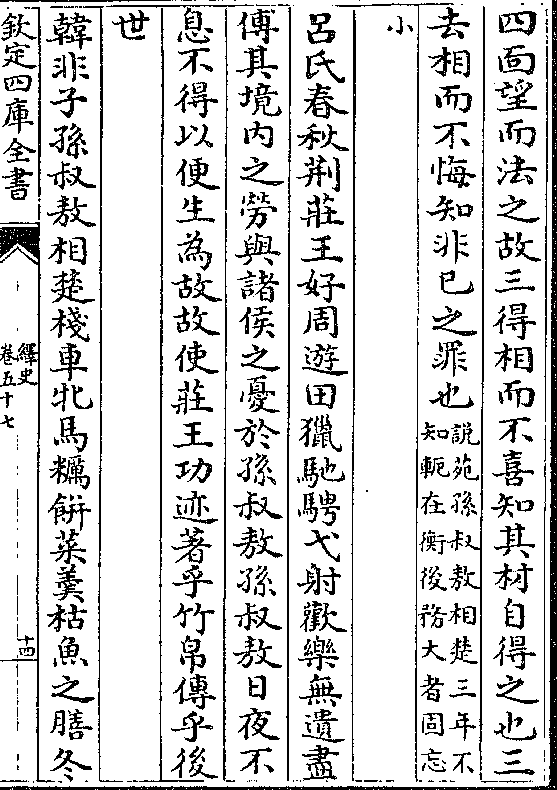 四面望而法之故三得相而不喜知其材自得之也三
去相而不悔知非已之罪也說苑孫叔敖相楚三年不
知軛在衡後務大者固忘
小
呂氏春秋荆莊王好周遊田獵馳騁弋射歡樂無遺盡
傅其境内之勞與諸侯之憂於孫叔敖孫叔敖日夜不
息不得以便生為故故使莊王功迹著乎竹帛傳乎後
世
韓非子孫叔敖相楚棧車牝馬糲餅菜羮枯魚之膳冬
欽定四庫全書
繹史
卷五十七
十四